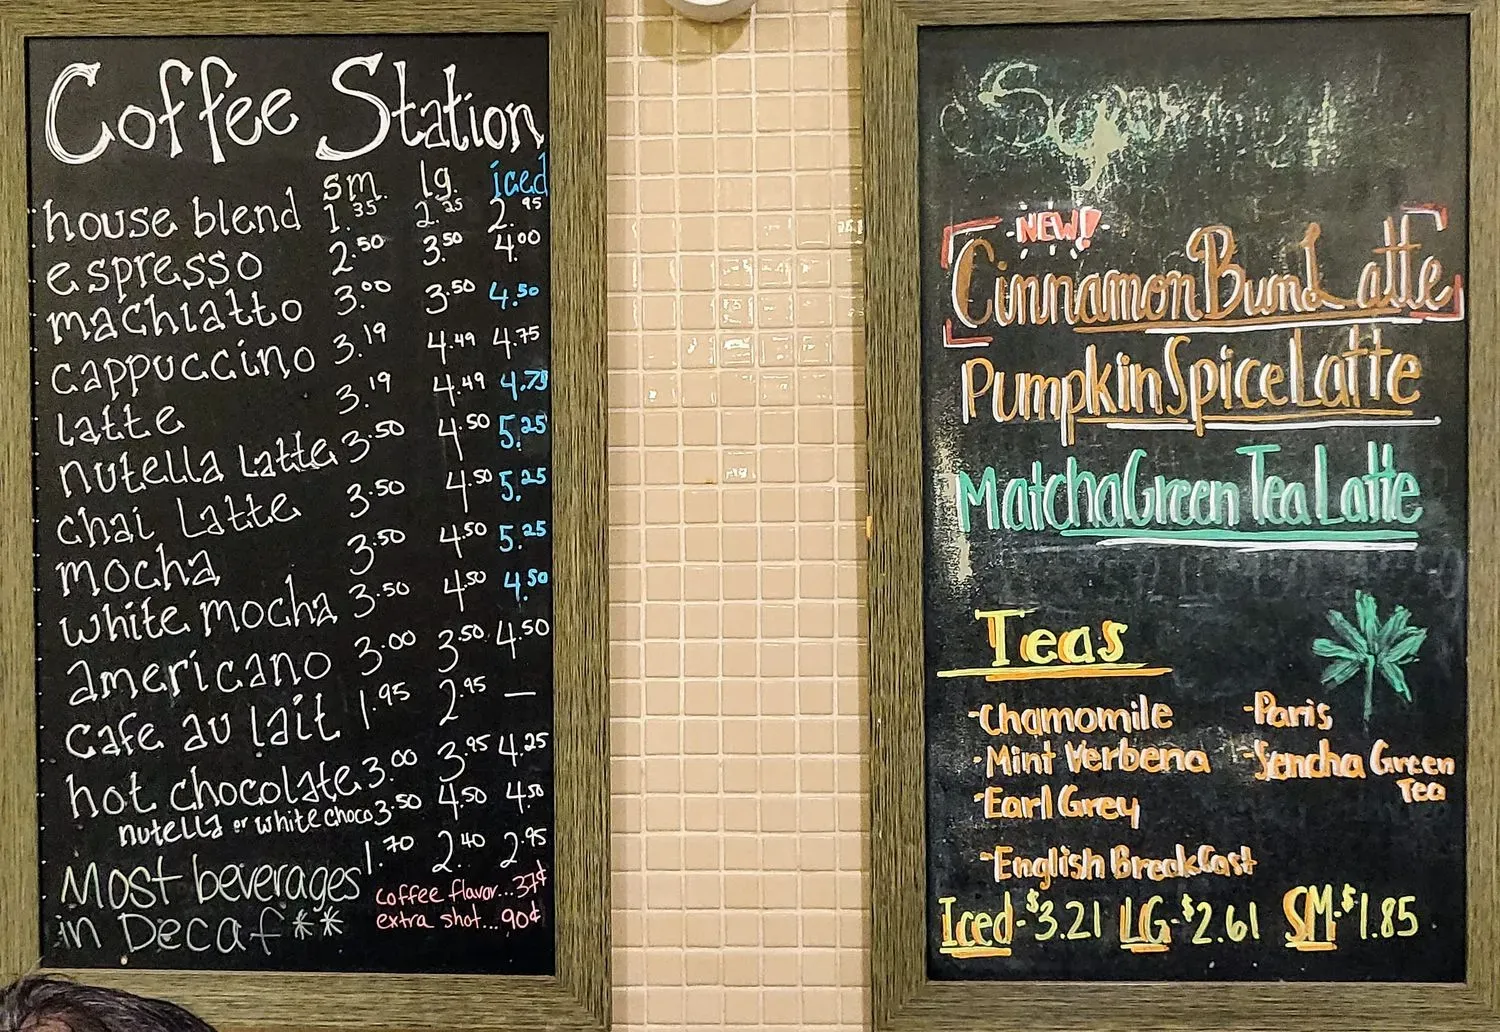 Coffee Station
sm. lg. iced
house blend 1.35 2.25 2.95
espresso 2.50 3.50 4.00
machiatto 3.00 3.50 4.50
cappuccino 3.19 4.49 4.75
latte 3.19 4.49 4.75
nutella Latte 3.50 4.50 5.25
chai Latte 3.50 4.50 5.25
mocha 3.50 4.50 5.25
white mocha 3.50 4.50 4.50
americano 3.00 3.50 4.50
cafe au lait 1.95 2.95 —
hot chocolate 3.00 3.95 4.25
nutella or white choco 3.50 4.50 4.50
Most beverages 1.70 2.40 2.95
in Decaf**
coffee flavor...37¢
extra shot...90¢
NEW!
Cinnamon Bun Latte
Pumpkin Spice Latte
Matcha Green Tea Latte
Teas
-Chamomile
-Mint Verbena
-Earl Grey
-English Breakfast
-Paris
-Sencha Green
Tea
Iced-$3.21 LG-$2.61 SM-$1.85